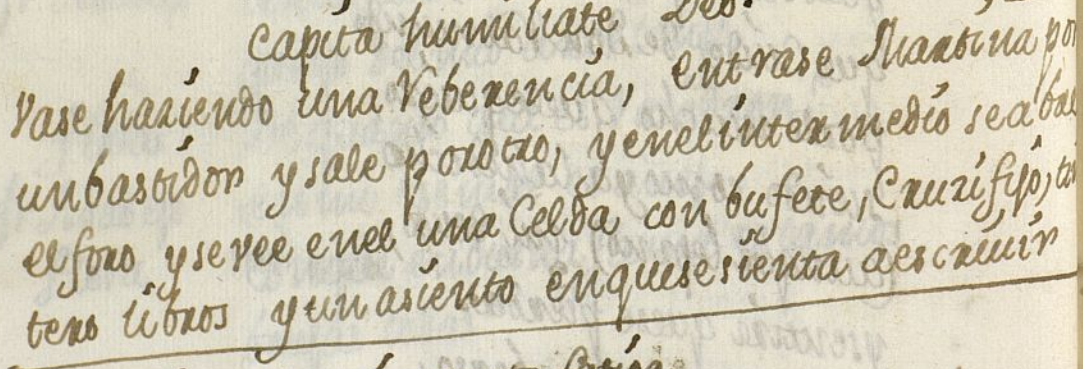 Capita humiliate Deo.
Vase haziendo una Reberencia, entrase Martina por
un bastidor y sale por otro, y en el intermedio se abre
el foro y se vee en el una Celda con bufete, Cruzifijo, tin
tero libros y un asiento en que se sienta a escriuir